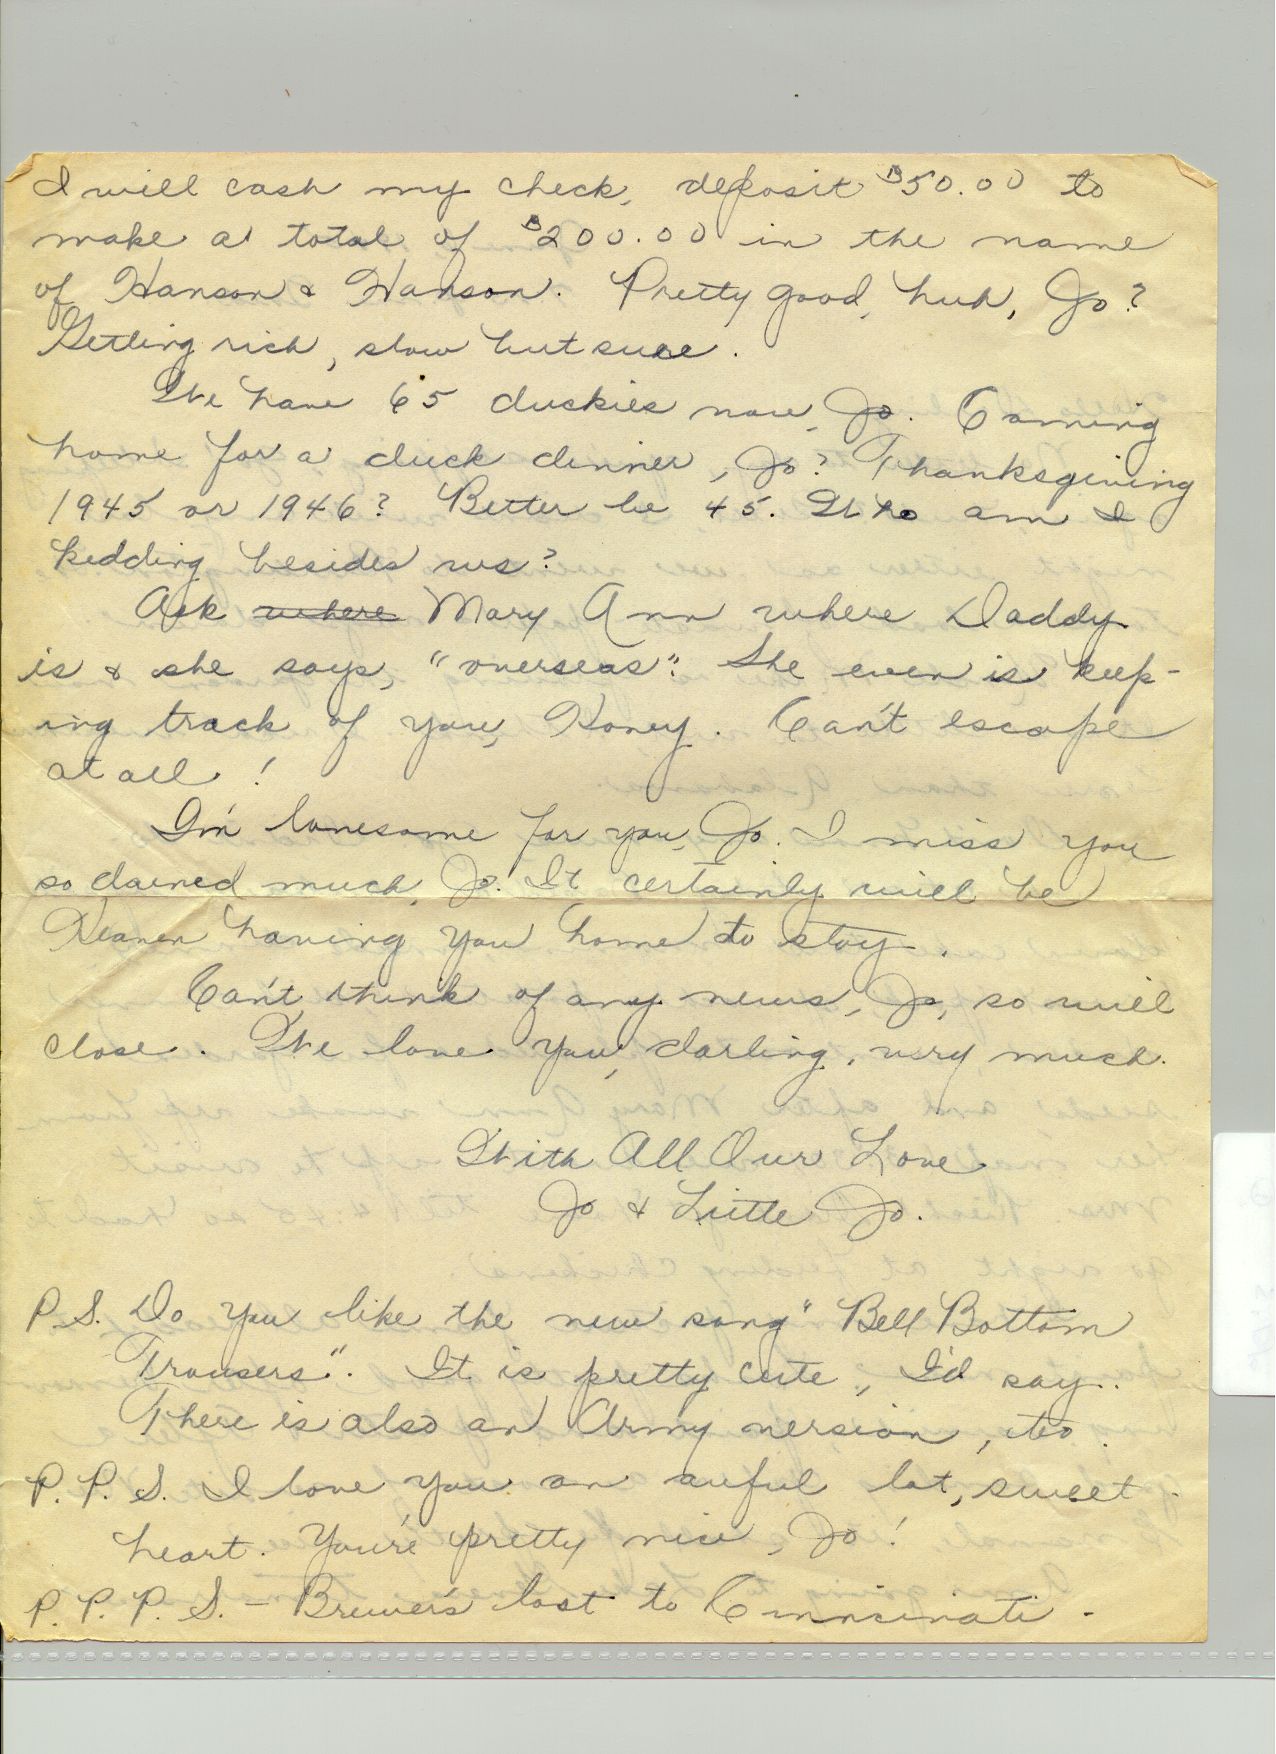 I will cash my check, deposit $50.00 to
make a total of $200.00 in the name
of Hanson & Hanson. Pretty good, huh, Jo?
Getting rich, slow but sure.
We have 65 duckies now, Jo. Coming
home for a duck dinner, Jo? Thanksgiving
1945 or 1946? Better be 45. Who am I
kidding besides us?
Ask where Mary Ann where Daddy
is & she says, "overseas". She even is keep-
ing track of you, Honey. Can't escape
at all!
I'm lonesome for you, Jo. I miss you
so darned much, Jo. It certainly will be
Heaven having you home to stay.
Can't think of any news, Jo, so will
close. We love you, darling, very much.
With All Our Love
Jo & Little Jo.
P.S. Do you like the new song "Bell Bottom
Trousers". It is pretty cute, I'd say.
There is also an Army version, too.
P.P.S. I love you an awful lot, sweet-
heart. You're pretty nice, Jo!
P.P.P.S. - Brewer's lost to Cinncinati -